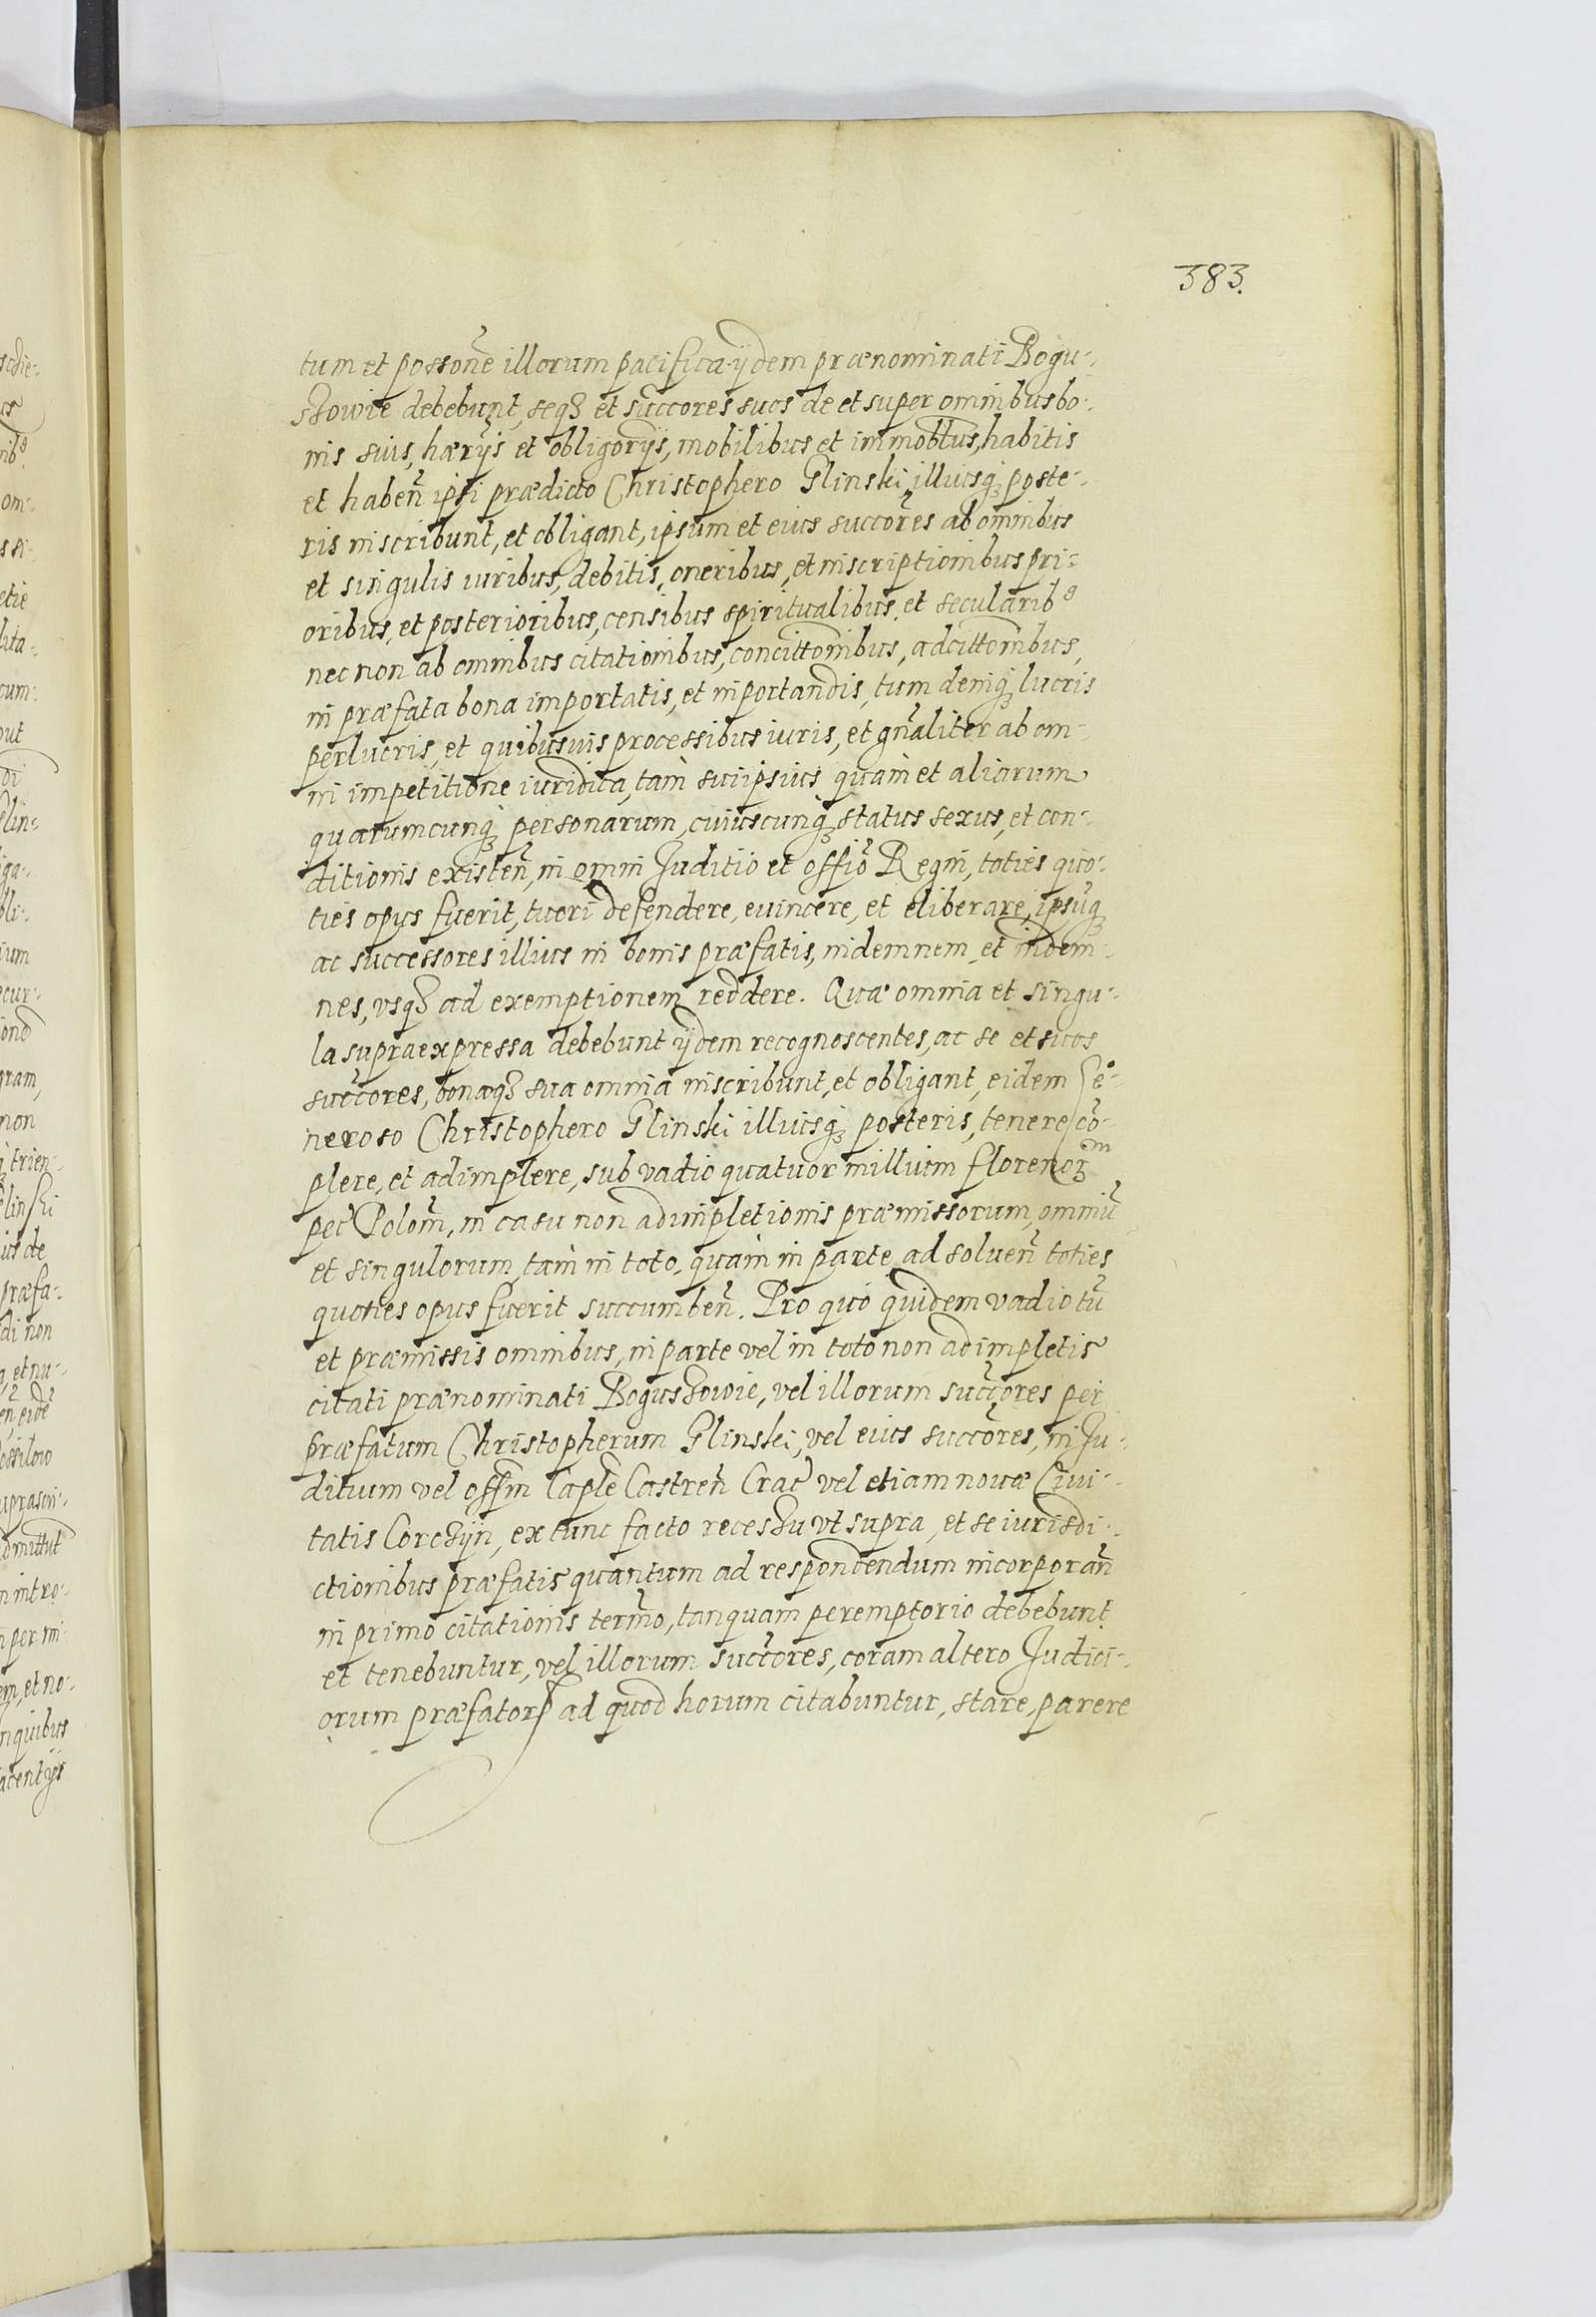 383.
tum et possone illorum pacifica ijdem prænominati Bogu-
szowie debebunt, seq3 et succores suos de et super omnibus bo-
nis suis, hærijs et obligorijs, mobilibus et immobtus, habitis
et haben̄ ipsi prædicto Christophero Glinski, illiusq3 poste-
ris inscribunt, et obligant, ipsum et eius succores ab omnibus
et singulis iuribus, debitis, oneribus, et inscriptionibus pri-
oribus, et posterioribus, censibus spiritualibus, et secularib9
nec non ab omnibus citationibus, concittonibus, adcittonibus,
in præfata bona importatis, et inportandis, tum deniq3 lucris
perlucris, et quibusuis processibus iuris, et gn̄aliter ab om-
ni impetitione iuridica, tam suiipsius quam et aliorum
quarumcunq3 personarum, cuiuscunq3 status sexus, et con-
ditionis existen̄, in omni Juditio et offio Regni, toties quo-
ties opus fuerit, tueri defendere, euincere, et eliberare, ipsuq3
ac successores illius in bonis præfatis, indemnem, et indem-
nes, vsq3 ad exemptionem reddere. Quæ omnia et singu-
la supraexpressa debebunt ijdem recognoscentes, ac se et suos
succores, bonaq3 sua omnia inscribunt, et obligant, eidem Ge-
neroso Christophero Glinski illiusq3 posteris, tenere, cō-
plere, et adimplere, sub vadio quatuor millium florenor3
pec Polon̄, in casu non adimpletionis præmissorum, omniū
et singulorum, tam in toto, quam in parte, ad soluen̄ toties
quoties opus fuerit succumben̄. Pro quo quidem vadio tū
et præmissis omnibus, in parte vel in toto non adimpletis
citati prænominati Boguszowie, vel illorum succores per
præfatum Christopherum Glinski, vel eius succores, in Ju-
ditium vel offm Caple Castren̄ Crac vel etiam nouæ Ciui-
tatis Corczijn, ex tunc facto recessu vt supra, et se iurisdi-
ctionibus præfatis quantum ad respondendum incorporan̄
in primo citationis termo, tanquam peremptorio debebunt
et tenebuntur, vel illorum succores, coram altero Judici-
orum præfator ad quod horum citabuntur, stare, parere